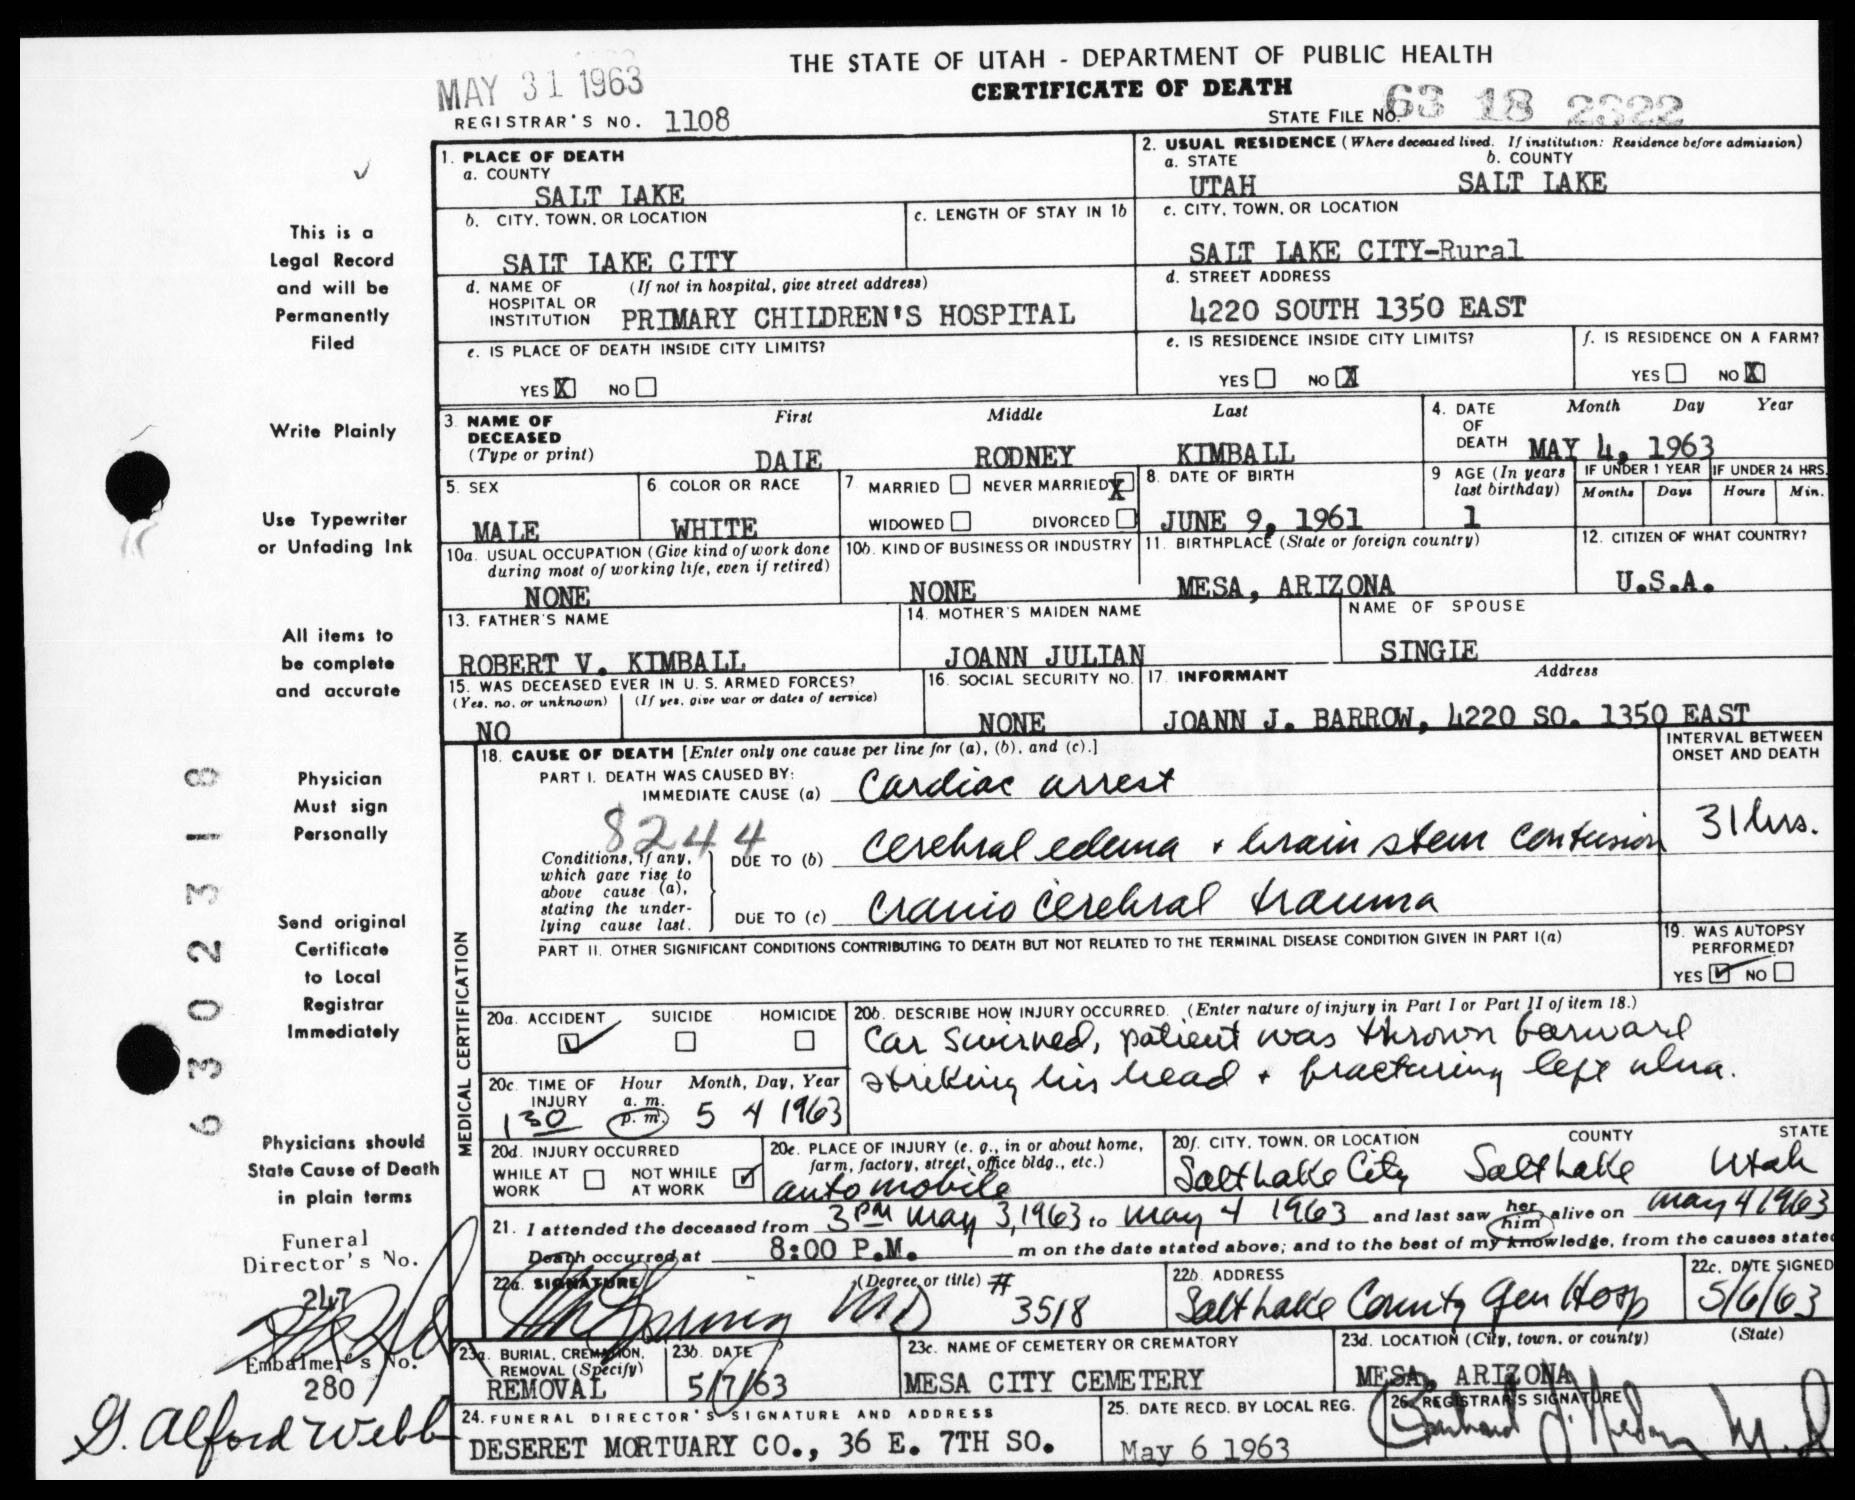 THE STATE OF UTAH - DEPARTMENT OF PUBLIC HEALTH
MAY 31 1963
CERTIFICATE OF DEATH
REGISTRAR'S NO. 1108
STATE FILE NO. 63 18 2322
1. PLACE OF DEATH
a. COUNTY
SALT LAKE
2. USUAL RESIDENCE (Where deceased lived. If institution: Residence before admission)
a. STATE b. COUNTY
UTAH SALT LAKE
b. CITY, TOWN, OR LOCATION
SALT LAKE CITY
c. LENGTH OF STAY IN 1b
c. CITY, TOWN, OR LOCATION
SALT LAKE CITY-Rural
d. NAME OF (If not in hospital, give street address)
HOSPITAL OR
INSTITUTION PRIMARY CHILDREN'S HOSPITAL
d. STREET ADDRESS
4220 SOUTH 1350 EAST
e. IS PLACE OF DEATH INSIDE CITY LIMITS?
YES X NO
e. IS RESIDENCE INSIDE CITY LIMITS?
YES NO X
f. IS RESIDENCE ON A FARM?
YES NO X
3. NAME OF DECEASED (Type or print)
First Middle Last
DALE RODNEY KIMBALL
4. DATE OF DEATH Month Day Year
MAY 4, 1963
5. SEX
MALE
6. COLOR OR RACE
WHITE
7. MARRIED NEVER MARRIED X
WIDOWED DIVORCED
8. DATE OF BIRTH
JUNE 9, 1961
9 AGE (In years last birthday)
1
IF UNDER 1 YEAR IF UNDER 24 HRS.
Months Days Hours Min.
10a. USUAL OCCUPATION (Give kind of work done
during most of working life, even if retired)
NONE
10b. KIND OF BUSINESS OR INDUSTRY
NONE
11. BIRTHPLACE (State or foreign country)
MESA, ARIZONA
12. CITIZEN OF WHAT COUNTRY?
U.S.A.
13. FATHER'S NAME
ROBERT V. KIMBALL
14. MOTHER'S MAIDEN NAME
JOANN JULIAN
NAME OF SPOUSE
SINGLE
15. WAS DECEASED EVER IN U. S. ARMED FORCES?
(Yes, no, or unknown) (If yes, give war or dates of service)
NO
16. SOCIAL SECURITY NO.
NONE
17. INFORMANT Address
JOANN J. BARROW, 4220 SO. 1350 EAST
MEDICAL CERTIFICATION
18. CAUSE OF DEATH [Enter only one cause per line for (a), (b), and (c).]
INTERVAL BETWEEN
ONSET AND DEATH
PART I. DEATH WAS CAUSED BY:
IMMEDIATE CAUSE (a) Cardiac arrest
8244
Conditions, if any,
which gave rise to
above cause (a),
stating the under-
lying cause last.
DUE TO (b) Cerebral edema + brain stem contusion
31 hrs.
DUE TO (c) Cranio Cerebral trauma
PART II. OTHER SIGNIFICANT CONDITIONS CONTRIBUTING TO DEATH BUT NOT RELATED TO THE TERMINAL DISEASE CONDITION GIVEN IN PART I(a)
19. WAS AUTOPSY
PERFORMED?
YES ✓ NO
20a. ACCIDENT SUICIDE HOMICIDE
✓
20b. DESCRIBE HOW INJURY OCCURRED. (Enter nature of injury in Part I or Part II of item 18.)
Car swirved, patient was thrown forward
striking his head + fracturing left ulna.
20c. TIME OF INJURY Hour Month, Day, Year
a. m.
1 30 p. m. 5 4 1963
20d. INJURY OCCURRED
WHILE AT WORK NOT WHILE AT WORK ✓
20e. PLACE OF INJURY (e. g., in or about home,
farm, factory, street, office bldg., etc.)
automobile
20f. CITY, TOWN, OR LOCATION COUNTY STATE
Salt Lake City Salt Lake Utah
21. I attended the deceased from 3 PM May 3, 1963 to May 4 1963 and last saw her him alive on May 4 1963
Death occurred at 8:00 P.M. m on the date stated above; and to the best of my knowledge, from the causes stated
22a. SIGNATURE (Degree or title) #
MD 3518
22b. ADDRESS
Salt Lake County Gen Hosp
22c. DATE SIGNED
5/6/63
23a. BURIAL, CREMATION,
REMOVAL (Specify)
REMOVAL
23b. DATE
5/7/63
23c. NAME OF CEMETERY OR CREMATORY
MESA CITY CEMETERY
23d. LOCATION (City, town, or county) (State)
MESA, ARIZONA
24. FUNERAL DIRECTOR'S SIGNATURE AND ADDRESS
DESERET MORTUARY CO., 36 E. 7TH SO.
25. DATE RECD. BY LOCAL REG.
May 6 1963
26. REGISTRAR'S SIGNATURE
M. D
This is a
Legal Record
and will be
Permanently
Filed
Write Plainly
Use Typewriter
or Unfading Ink
All items to
be complete
and accurate
Physician
Must sign
Personally
Send original
Certificate
to Local
Registrar
Immediately
Physicians should
State Cause of Death
in plain terms
Funeral
Director's No.
247
Embalmer's No.
280
G. Alford Webb
63022318